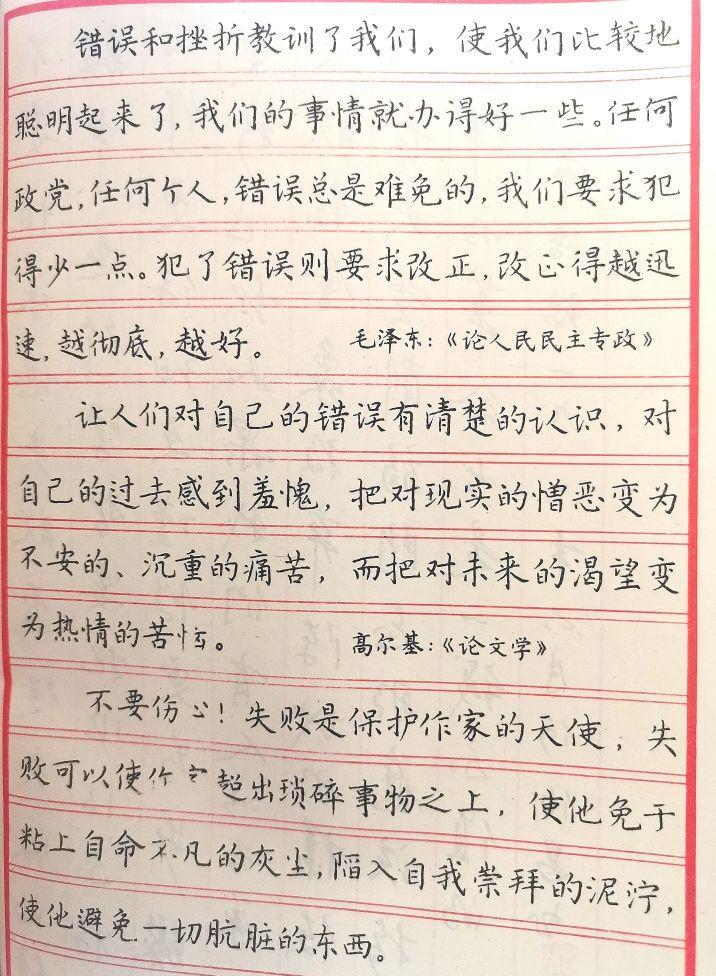 错误和挫折教训了我们，使我们比较地
聪明起来了，我们的事情就办得好一些。任何
政党，任何个人，错误总是难免的，我们要求犯
得少一点。犯了错误则要求改正，改正得越迅
速，越彻底，越好。 毛泽东：《论人民民主专政》
让人们对自己的错误有清楚的认识，对
自己的过去感到羞愧，把对现实的憎恶变为
不安的、沉重的痛苦，而把对未来的渴望变
为热情的苦恼。 高尔基：《论文学》
不要伤心！失败是保护作家的天使，失
败可以使作家超出琐碎事物之上，使他免于
粘上自命不凡的灰尘，陷入自我崇拜的泥泞，
使他避免一切肮脏的东西。